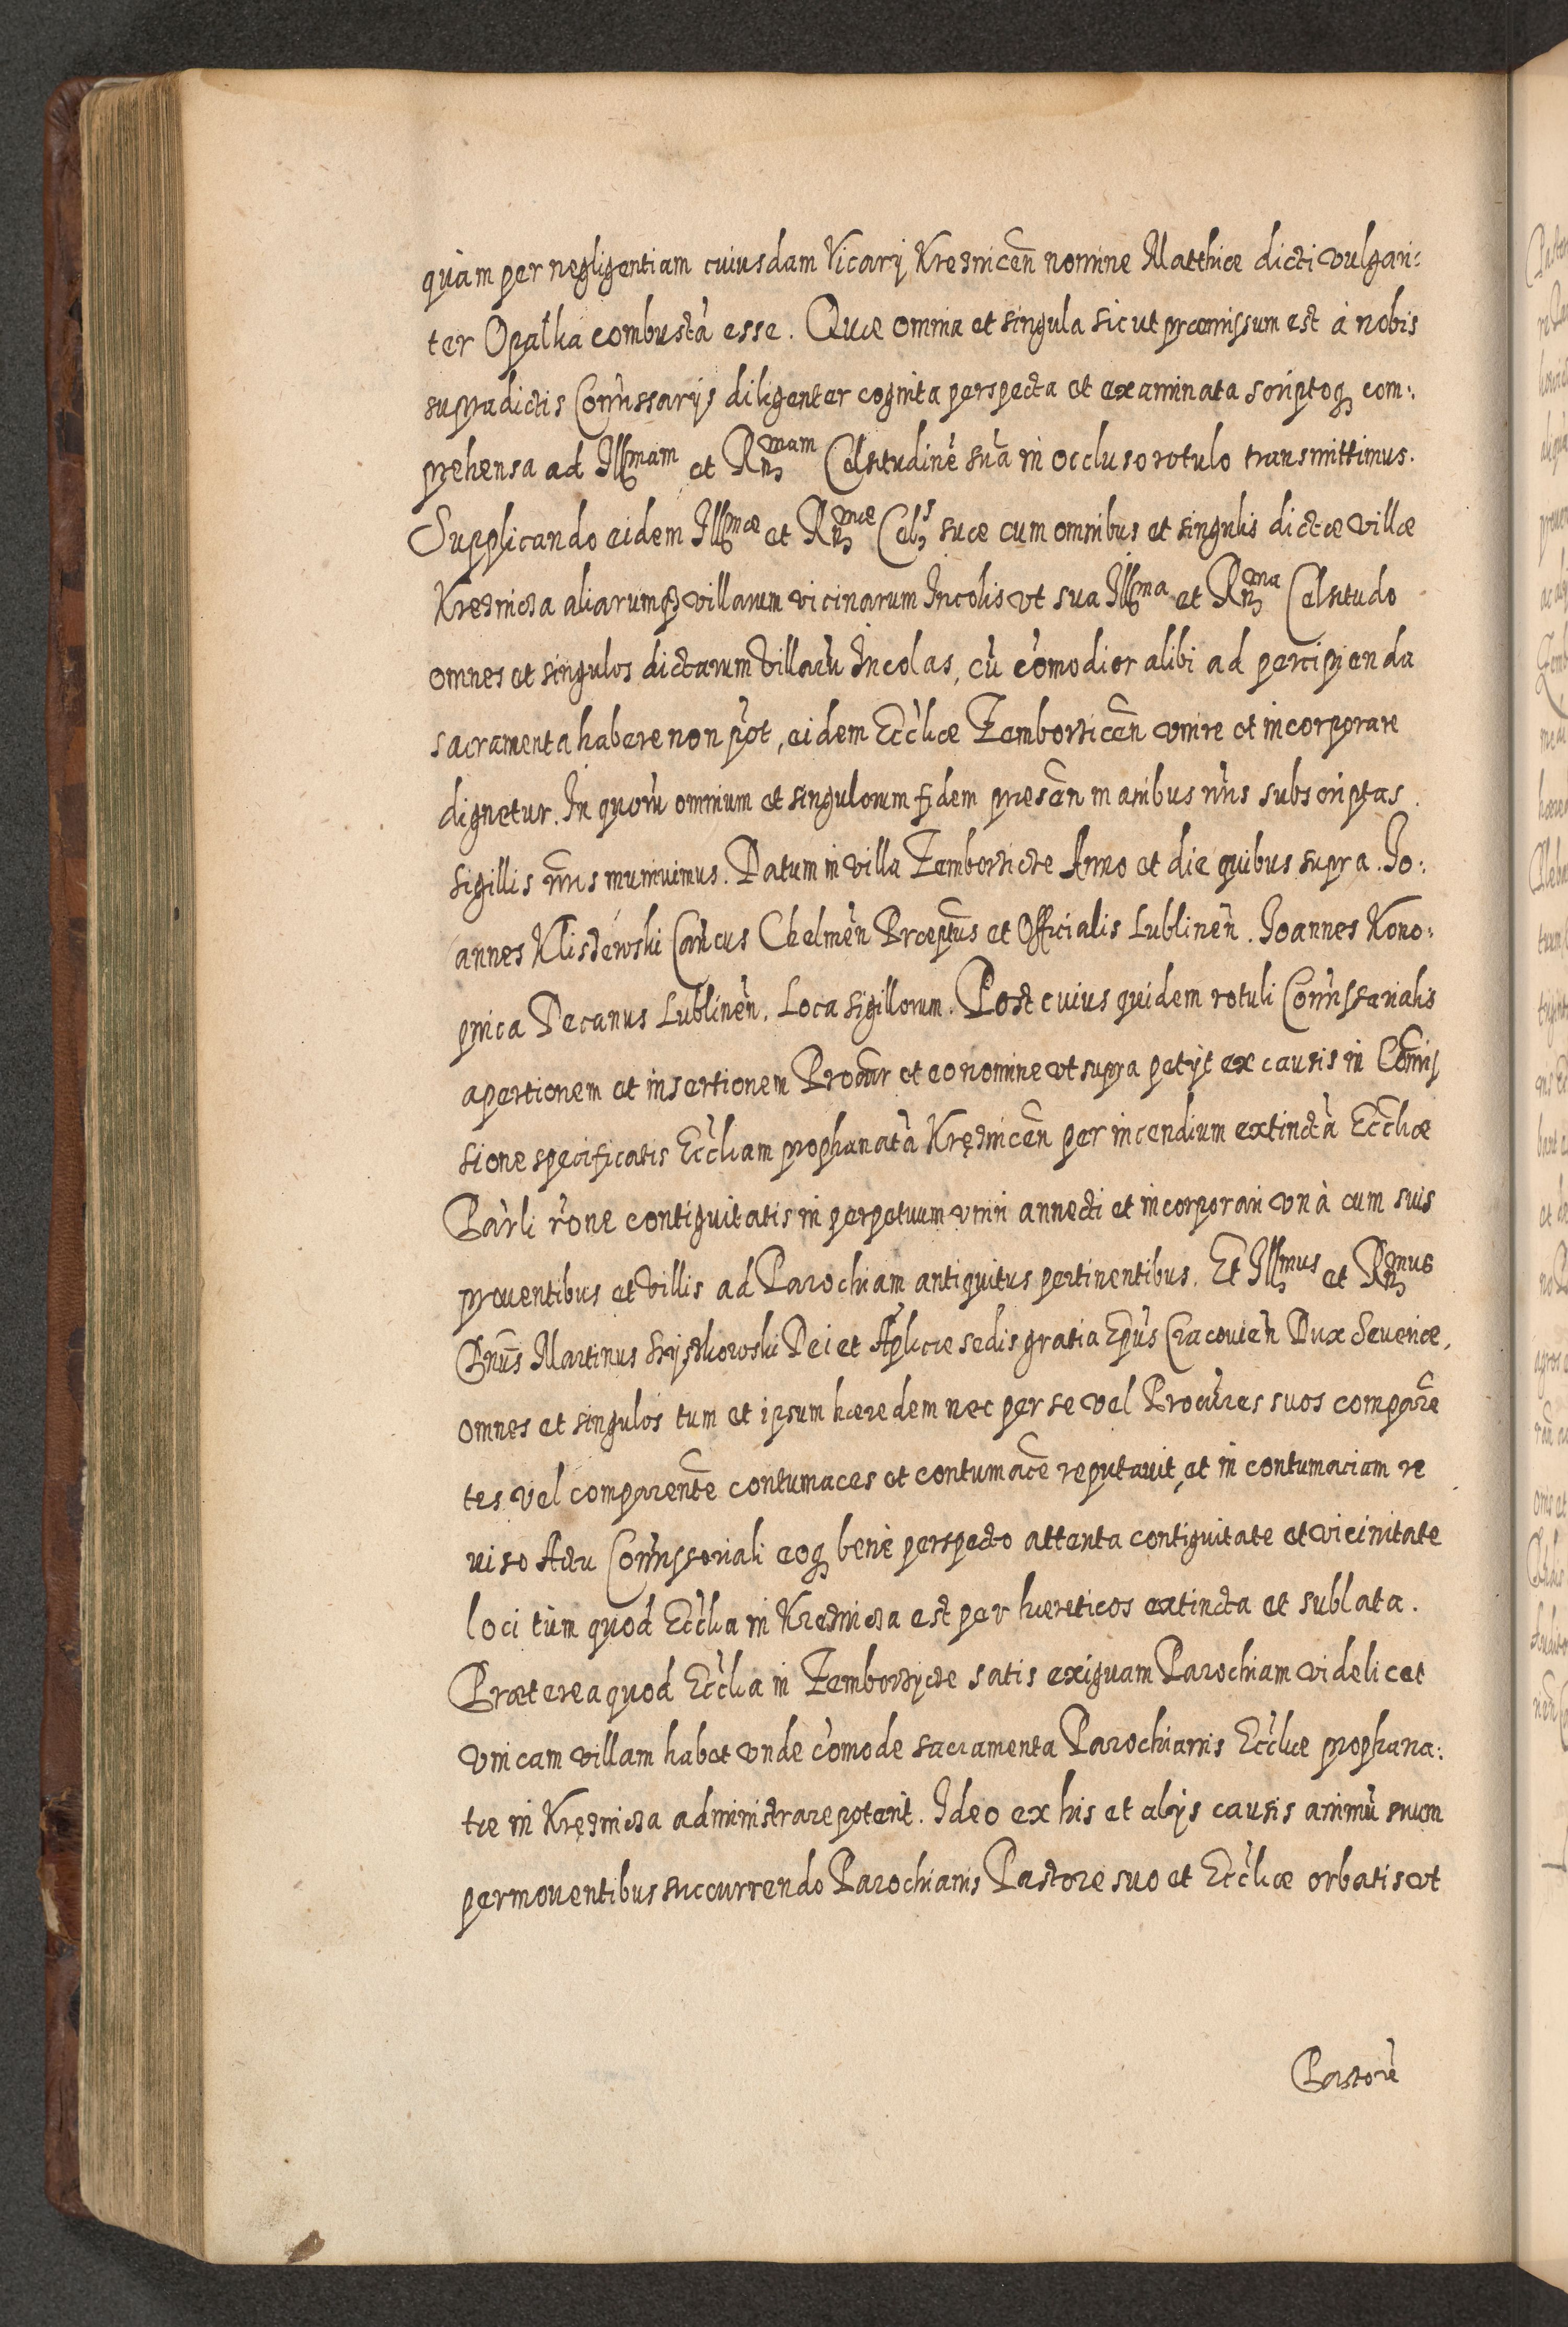 quàm per negligentiam cuiusdam Vicarij Kręznicen̄ nomine Matthiæ dicti vulgari:
ter Opałka combustã esse. Quæ omnia et singula sicut præmissum est à nobis
supradictis Com̃issarijs diligenter cognita perspecta et examinata scriptoq₃ com:
prehensa ad Ill^mam et R^mam Celsitudinẽ suã in occluso rotulo transmittimus.
Supplicando eidem Ill^mæ et R^mæ Cels suæ cum omnibus et singulis dictæ villæ
Kręznicza aliarumq₃ villarum vicinarum Incolis vt sua Ill^ma et R^ma Celsitudo
omnes et singulos dictarum villarũ Incolas, cũ cõmodior alibi ad percipienda
sacramenta habere non põt, eidem Eccl̃iæ Zemborzicen̄ vnire et incorporare
dignetur. In quorũ omnium et singulorum fidem presen̄ manibus nr̃is subscriptas
sigillis nr̃is muniuimus. Datum in villa Zemborzicze Anno et die quibus supra. Jo:
annes Kliszewski Cañcus Chelmeñ Præptũs et Officialis Lublineñ. Joannes Kono:
pnica Decanus Lublineñ. Loca sigillorum. Post cuius quidem rotuli Com̃issarialis
apertionem et insertionem Procur̃ et eo nomine vt supra petijt ex causis in Com̃is
sione specificatis Eccl̃iam prophanatã Kręznicen̄ per incendium extinctã Eccl̃iæ
Par̃li rõne contiguitatis in perpetuum vniri annecti et incorporari vnà cum suis
prouentibus et villis ad Parochiam antiquitus pertinentibus. Et Ill^mus et R^mus
Dnũs Martinus Szyszkowski Dei et Apl̃icæ sedis gratia Ep̃us Cracouieñ Dux Seueriæ,
omnes et singulos tum et ipsum hæredem nec per se vel Procur̃es suos comparẽ
tes vel comparentẽ contumaces et contumacẽ reputauit, et in contumaciam re
uiso Actu Com̃issoriali eoq₃ benè perspecto attenta contiguitate et vicinitate
loci tùm quod Eccl̃ia in Kręznicza est per hæreticos extincta et sublata.
Præterea quod Eccl̃ia in Zemborzycze satis exiguam Parochiam videlicet
vnicam villam habet vnde cõmode sacramenta Parochianis Eccl̃iæ prophana:
tæ in Kręznicza administrare poterit. Ideo ex his et alijs causis animũ suum
permouentibus succurrendo Parochianis Pastore suo et Eccl̃iæ orbatis vt
Pastorẽ